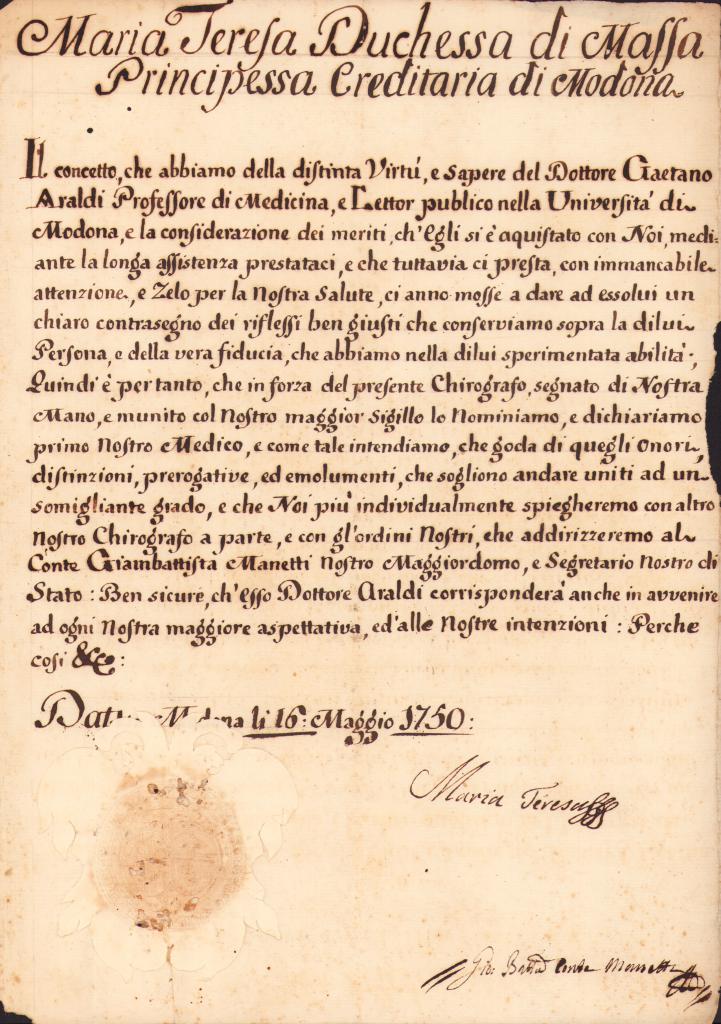 Maria Teresa Duchessa di Massa
Principessa Ereditaria di Modona
Il concetto, che abbiamo della distinta Virtù, e sapere del Dottore Gaetano
Araldi Professore di Medicina, e Lettor publico nella Università di
Modona, e la considerazione dei meriti, ch'Egli si è aquistato con Noi, medi-
ante la longa assistenza prestataci, e che tuttavia ci presta, con immancabile
attenzione, e Zelo per la Nostra Salute, ci anno mosse a dare ad essolui un
chiaro contrasegno dei riflessi ben giusti che conserviamo sopra la dilui
Persona, e della vera fiducia, che abbiamo nella dilui sperimentata abilità;
Quindi è per tanto, che in forza del presente Chirografo, segnato di Nostra
Mano, e munito col Nostro maggior Sigillo lo Nominiamo, e dichiariamo
primo Nostro Medico, e come tale intendiamo, che goda di quegli Onori,
distinzioni, prerogative, ed emolumenti, che sogliono andare uniti ad un
somigliante grado, e che Noi più individualmente spiegheremo con altro
Nostro Chirografo a parte, e con gl'ordini Nostri, che addirizzeremo al
Conte Giambattista Manetti Nostro Maggiordomo, e Segretario Nostro di
Stato: Ben sicure, ch'esso Dottore Araldi corrisponderà anche in avvenire
ad ogni Nostra maggiore aspettativa, ed'alle Nostre intenzioni: Perche
cosi &c:
li 16: Maggio 1750:
Maria Teresa
Gio: Batta Conte Manetti